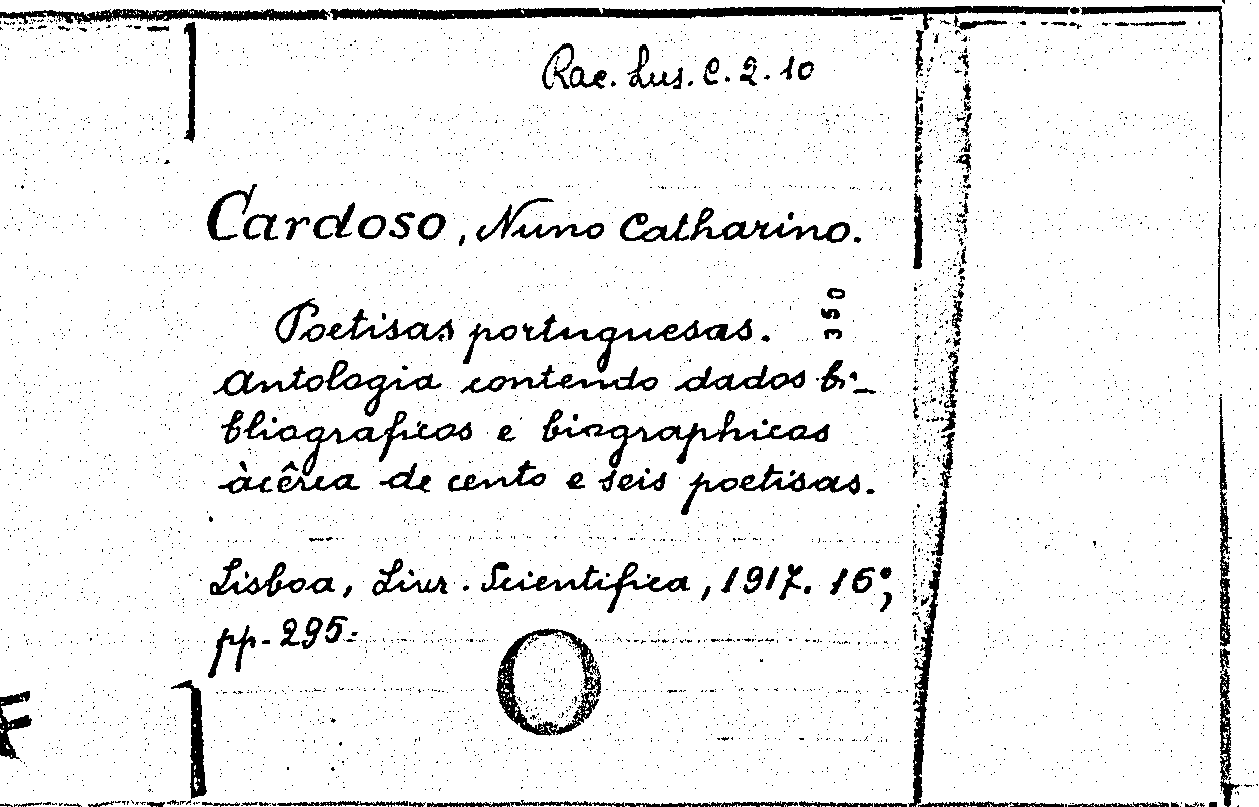 Rac. Lus. C. 2. 10
Cardoso, Nuno Catharino.
350
Poetisas portuguesas.
Antologia contendo dados bi-
bliograficos e biographicos
àcêrca de cento e seis poetisas.
Lisboa, Livr. Scientifica, 1917. 16º,
pp. 295.